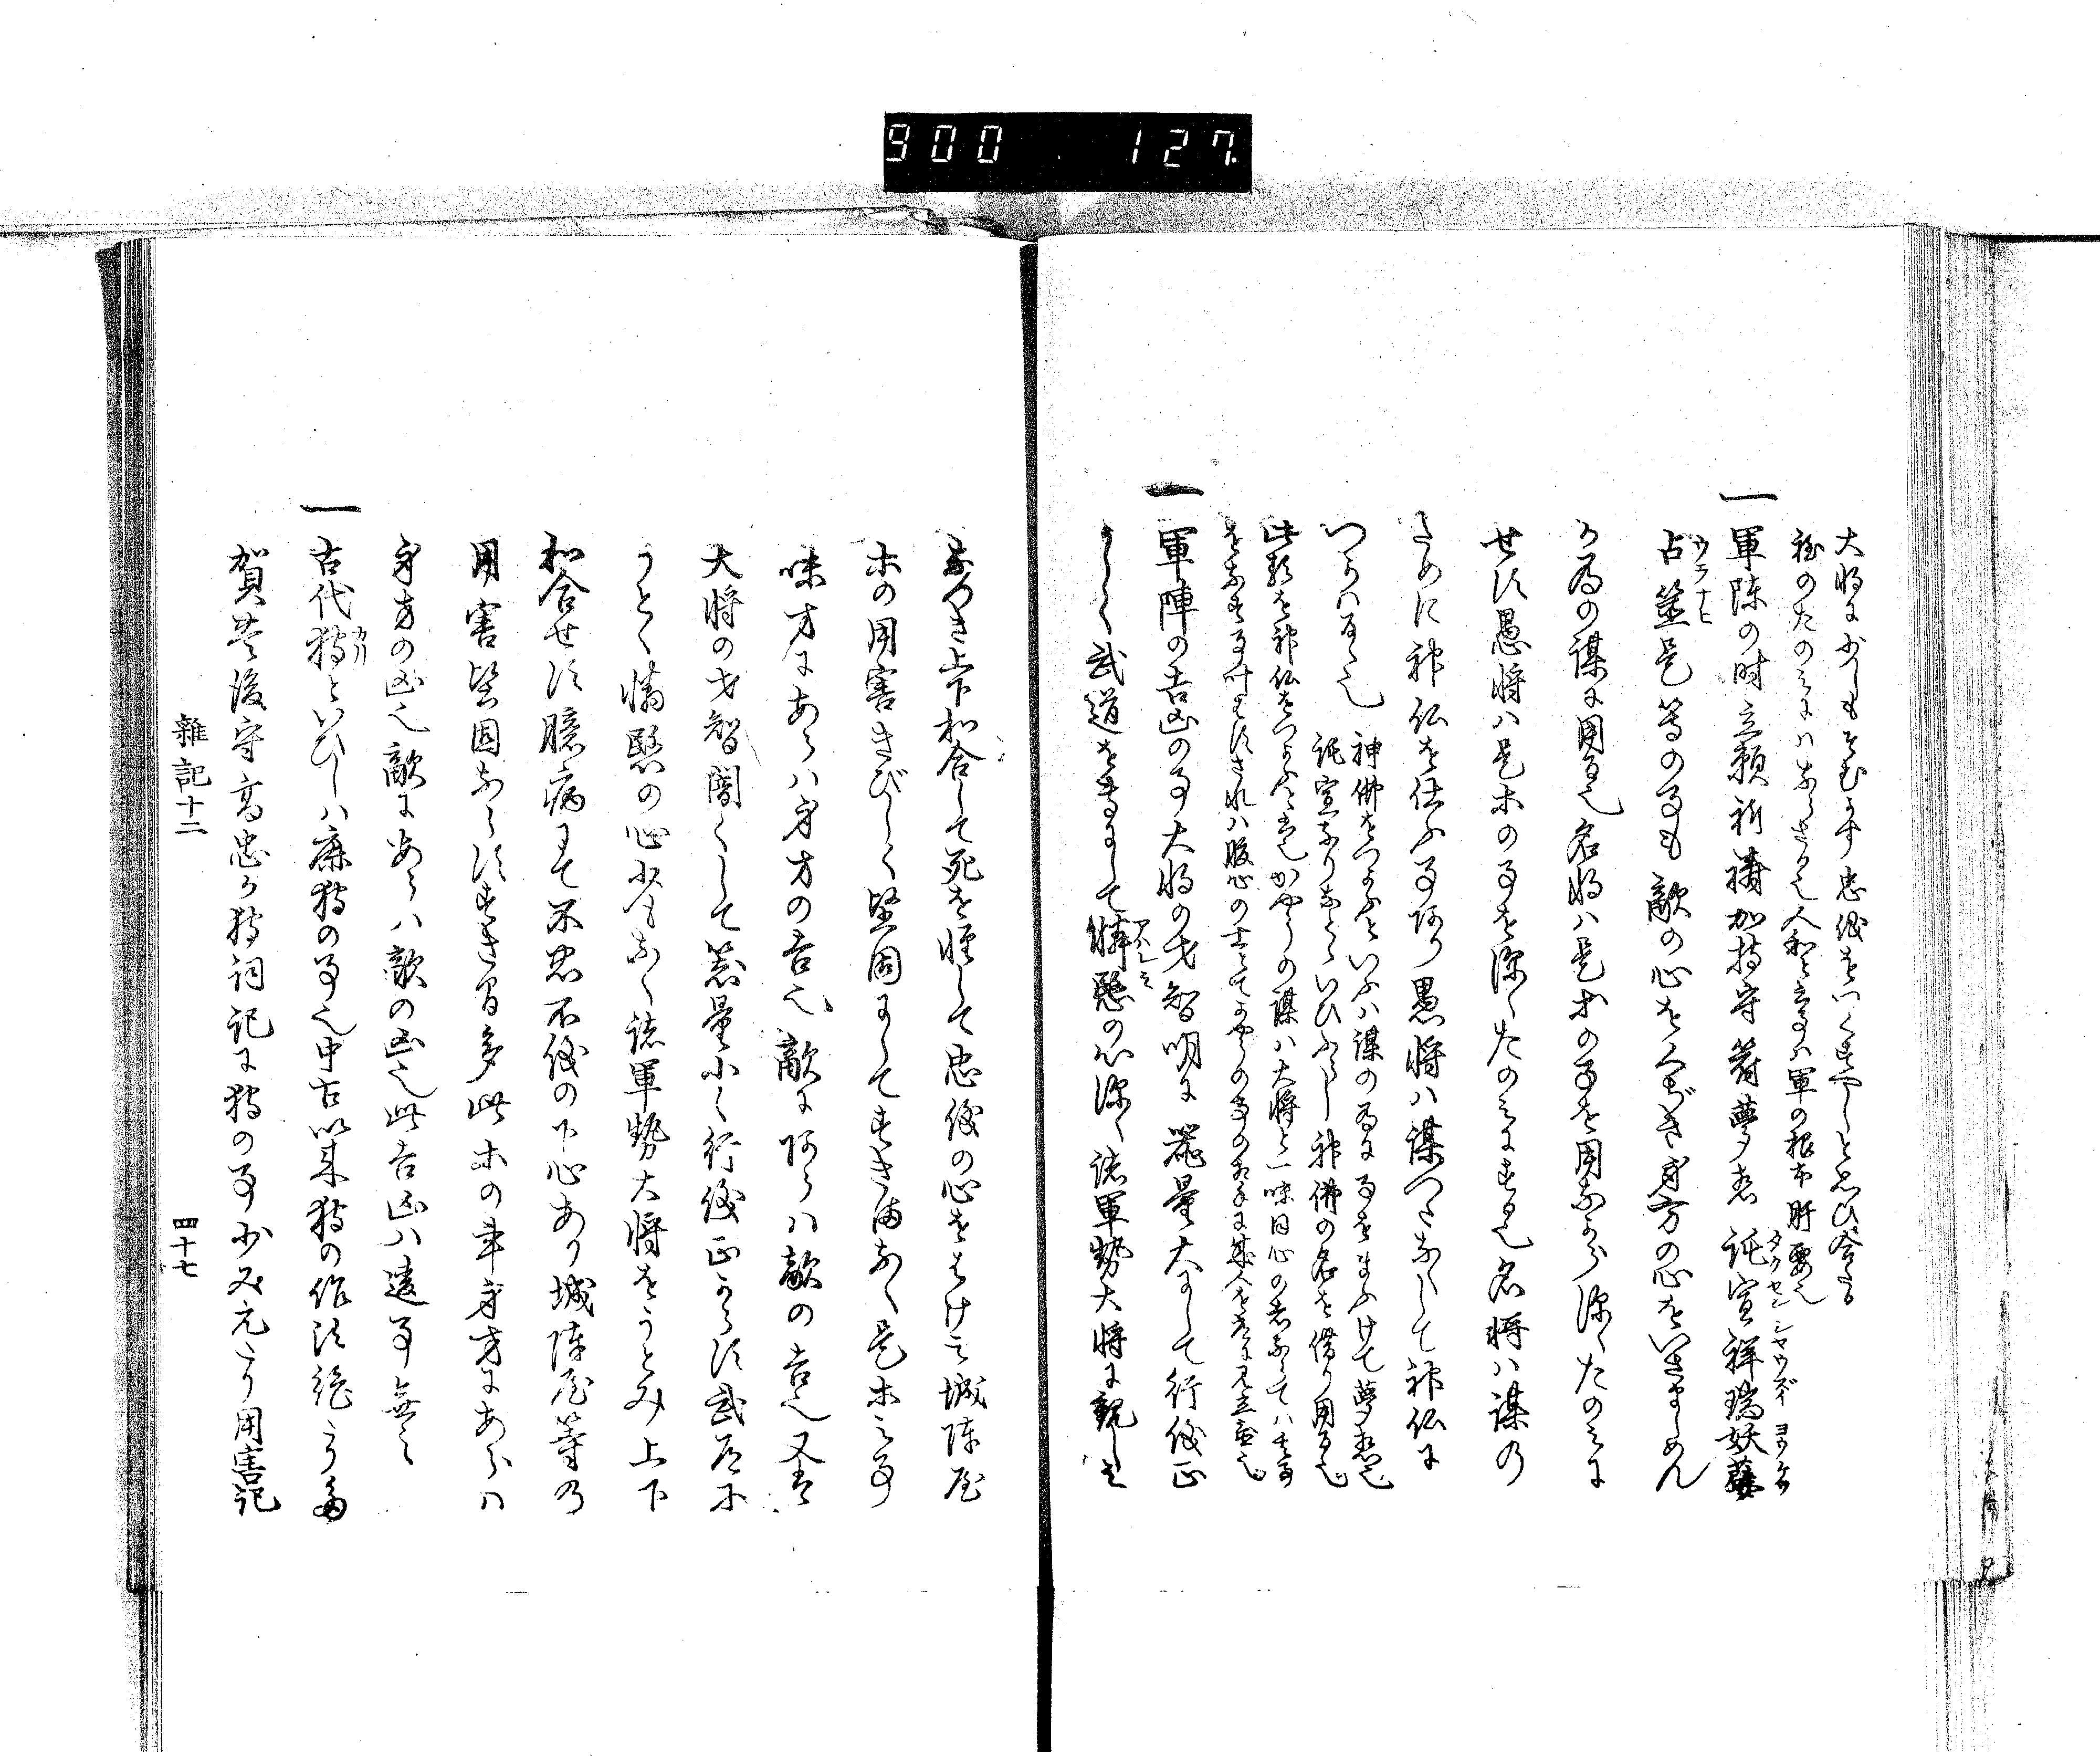 900 127.
大将に少しもそむかす忠儀をいたすへしと思ひ合する
程のたのみにハならさる也人和と云事ハ軍の根本肝要也
一 軍陳の時立願祈祷加持守着夢想託宣祥瑞妖孽
占筮是等の事も敵の心をくじき身方の心をいさましめん
か為の謀に用る也名将ハ是等の事を用なから深くたのみに
せす愚将ハ是ホの事を深くたのみにする也名将ハ謀の
ために神仏を仕ふ事あり愚将ハ謀つたなくして神仏に
つかハるゝ也
神佛をつかふといふハ謀の為に事をまふけて夢想也
託宣なりなとゝいひふらし神佛の名を借り用る也
此類を神仏をつかふと云也かやうの謀ハ大将と一味同心の者ならてハ其事
をなす事叶ハすされハ腹心の士をてかやうの事の為に其人を常に見立置也
一 軍陣の吉凶の事大将の才智明に器量大にして行儀正
しく武道を専にして憐愍の心深く諸軍勢大将に親しミ
なつき上下和合して死を軽して忠儀の心をはけミ城陣屋
ホの用害きびしく堅固にしてすき間なく是ホの事
味方にあらハ身方の吉也敵にあらハ敵の吉也又是
大将の才智闇くして器量小く行儀正からす武道に
うとく憐愍の心少もなく諸軍勢大将をうとみ上下
和合せす臆病にて不忠不儀の下心あり城陣屋等の
用害堅固ならすすき間多此ホの事身方にあらハ
身方の凶也敵にあらハ敵の凶也此吉凶ハ違事無之
一 古代狩といひしハ鹿狩の事也中古以来狩の作法絶たり多
賀豊後守高忠か狩詞記に狩の事少み元たり用害記
雑記十二
四十七